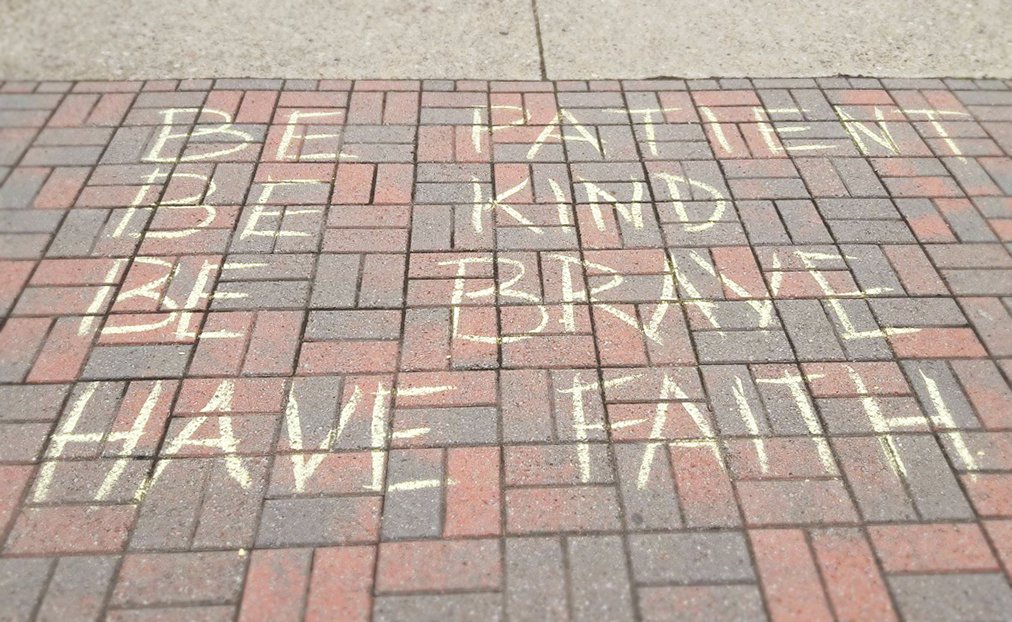 BE PATIENT
BE KIND
BE BRAVE
HAVE FAITH